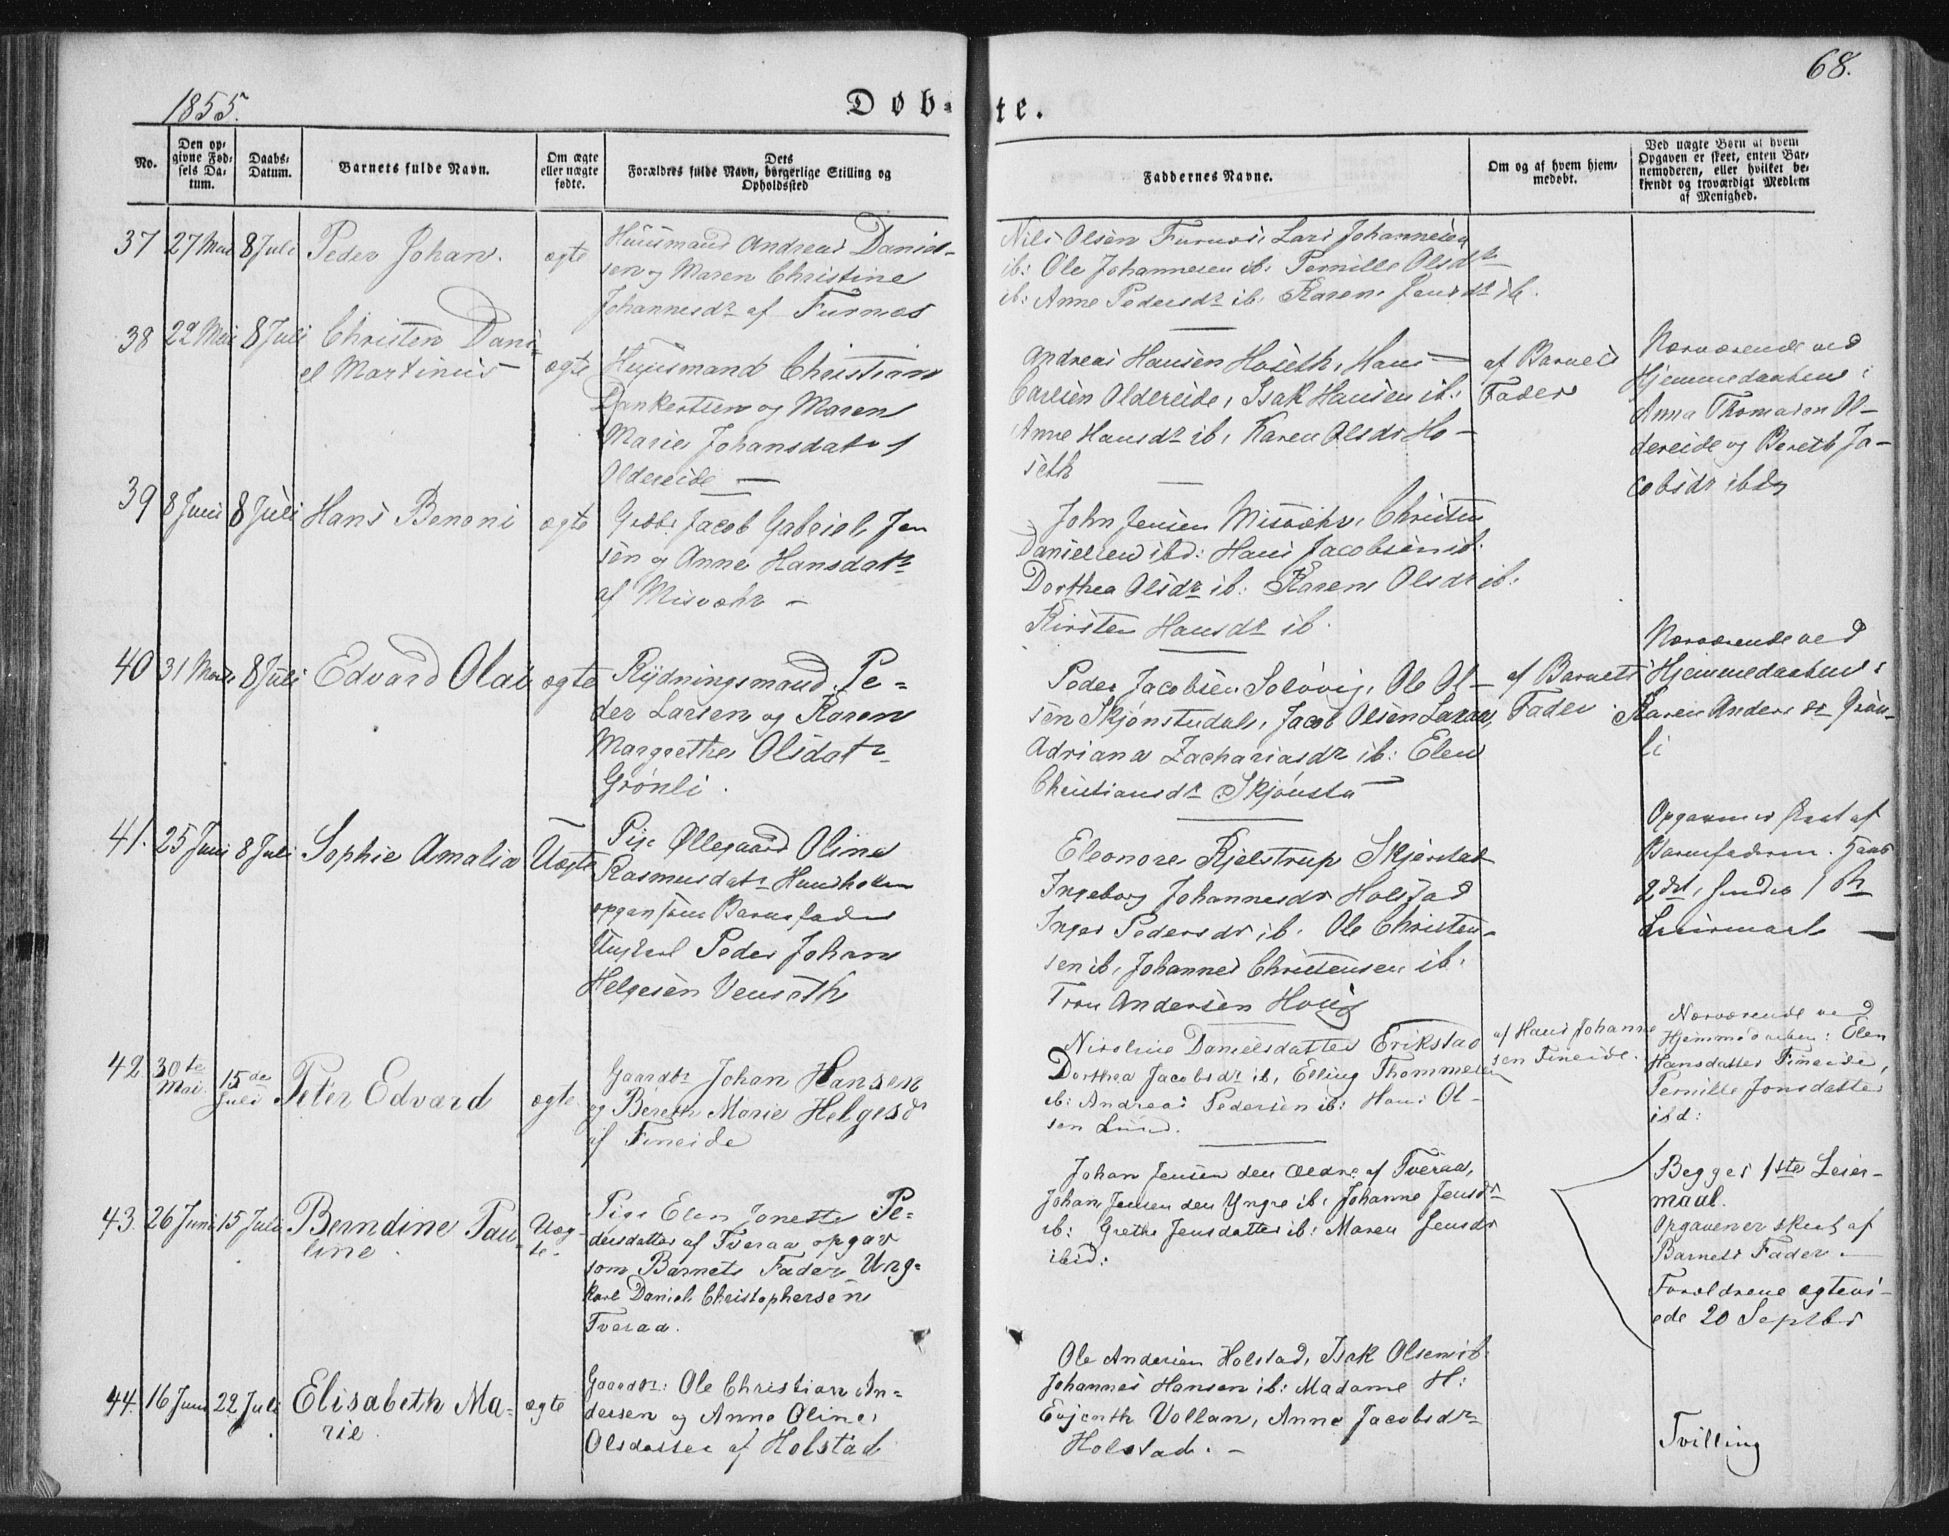 1855.
68.
Døb-
te.
No.
Den op-
givne Fød-
sels Da-
tum.
Daabs-
Datum.
Barnets fulde Navn.
Om ægte
eller uægte
fødte.
Dets
Forældres fulde Navn, borgerlige Stilling og
Opholdssted
Faddernes Navne.
Om og af hvem hjem-
medøbt.
Ved uægte Børn at hvem
Opgaven er skeet, enten Bar-
nemoderen, eller hvilket be-
kjendt og troværdigt Medlem
af Menighed.
37
27 Mai
8 Juli
Peder Johan.
ægte
Huusmand Andreas Daniel-
sen og Maren Christine
Johannesdr af Furnes
Nils Olsen Furnes, Lars Johannesen
ib: Ole Johannesen ib: Pernille Olsdr
ib: Anne Pedersdr ib, Karen Jensdr ib.
38
22 Mai
8 Juli
Christen Dani-
el Martinus
ægte
Huusmand Christian
Dankertsen og Maren
Marie Johansdatr
Oldereide —
Andreas Hansen Hoseth, Hans
Carlsen Oldereide, Isak Hansen ib:
Anne Hansdr ib, Karen Olsdr Ho-
seth
af Barnets
Fader
Nærværende ved
Hjemmedaaben:
Anna Thomasen Ol-
dereide og Bereth Ja-
cobsdr ibd
39
8 Juni
8 Juli
Hans Benoni
ægte
Gaardbr Jacob Gabriel Jen
sen og Anne Hansdatr
af Misvæhr —
John Jensen Misvæhr, Christen
Danielsen ibd: Hans Jacobsen ib.
Dorthea Olsdr ib: Karen Olsdr ib:
Kirsten Hansdr ib.
40
31 Marts
8 Juli
Edvard Olai
ægte
Rydningsmand Pe-
der Larsen og Karen
Margrethe Olsdatr
Grønli.
Peder Jacobsen Soløvig, Ole Ol-
sen Skjønstudal, Jacob Olsen
Adriana Zachariasdr ib: Elen
Christiansdr Skjønsta
af Barnets
Fader.
Nærværende ved
Hjemmedaaben:
Karen Andersdr Grøn-
li
41.
25 Juni
8 Juli
Sophie Amalia
Uægte
Pige Øllegaard Oline
Rasmusdatr Hundholm
opgav som Barnefader
Ungkarl Peder Johan
Helgesen Venseth
Eleonore Kjelstrup Skjerstad
Ingeborg Johannesdr Holstad
Inger Pedersdr ib. Ole Christen-
sen ib, Johannes Christensen ib.
Tron Andersen
Opgaven er skeet af
Barnefaderen. Hans
2det, hendes 1ste
Leiermaal —
42
30te
Mai
15de
Juli
Peter Edvard
ægte
Gaardbr Johan Hansen
og Bereth Marie Helgesdr
af Fineide
Nicoline Danielsdatter Erikstad
Dorthea Jacobsdr ib, Elling Thommesen
ib: Andreas Pedersen ib: Hans Ol-
sen Lund.
af Hans Johanne
sen Fineide.
Nærværende ved
Hjemmedaaben: Elen
Hansdatter Fineide,
Pernille Jonsdatter
ibd:
43.
26 Juni
15 Juli
Berndine Pau-
line.
Uæg-
te.
Pige Elen Jonette Pe-
dersdatter af Tveraa opgav
som Barnets Fader Ung-
karl Daniel Christophersen
Tveraa.
Johan Jensen den Ældre af Tveraa,
Johan Jensen den Yngre ib, Johanne Jensdr
ib: Grethe Jensdatter ib: Maren Jensdr
ibid:
Begges 1ste Leier-
maal.
Opgaven er skeet af
Barnets Fader —
Forældrene ægtevi-
ede 20 Septbr
44.
16 Juni
22 Juli
Elisabeth Ma-
rie.
ægte
Gaardbr: Ole Christian An-
dersen og Anne Oline
Olsdatter af Holstad
Ole Andersen Holstad, Isak Olsen ib.
Johannes Hansen ib: Madame H:
Evjenth Vollan, Anne Jacobsdr
Holstad. —
Tvilling